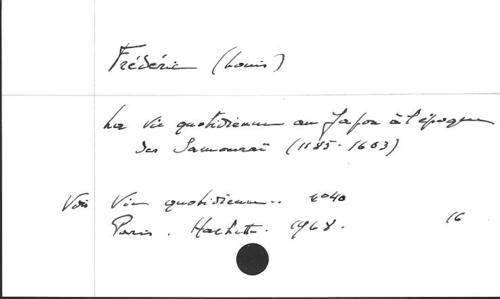 Frédéric (Louis)
La Vie quotidienne au Japon à l'époque
des Samouraï (1185-1603)
Voir Vie quotidienne.. 4040
Paris. Hachette. 1968. 16